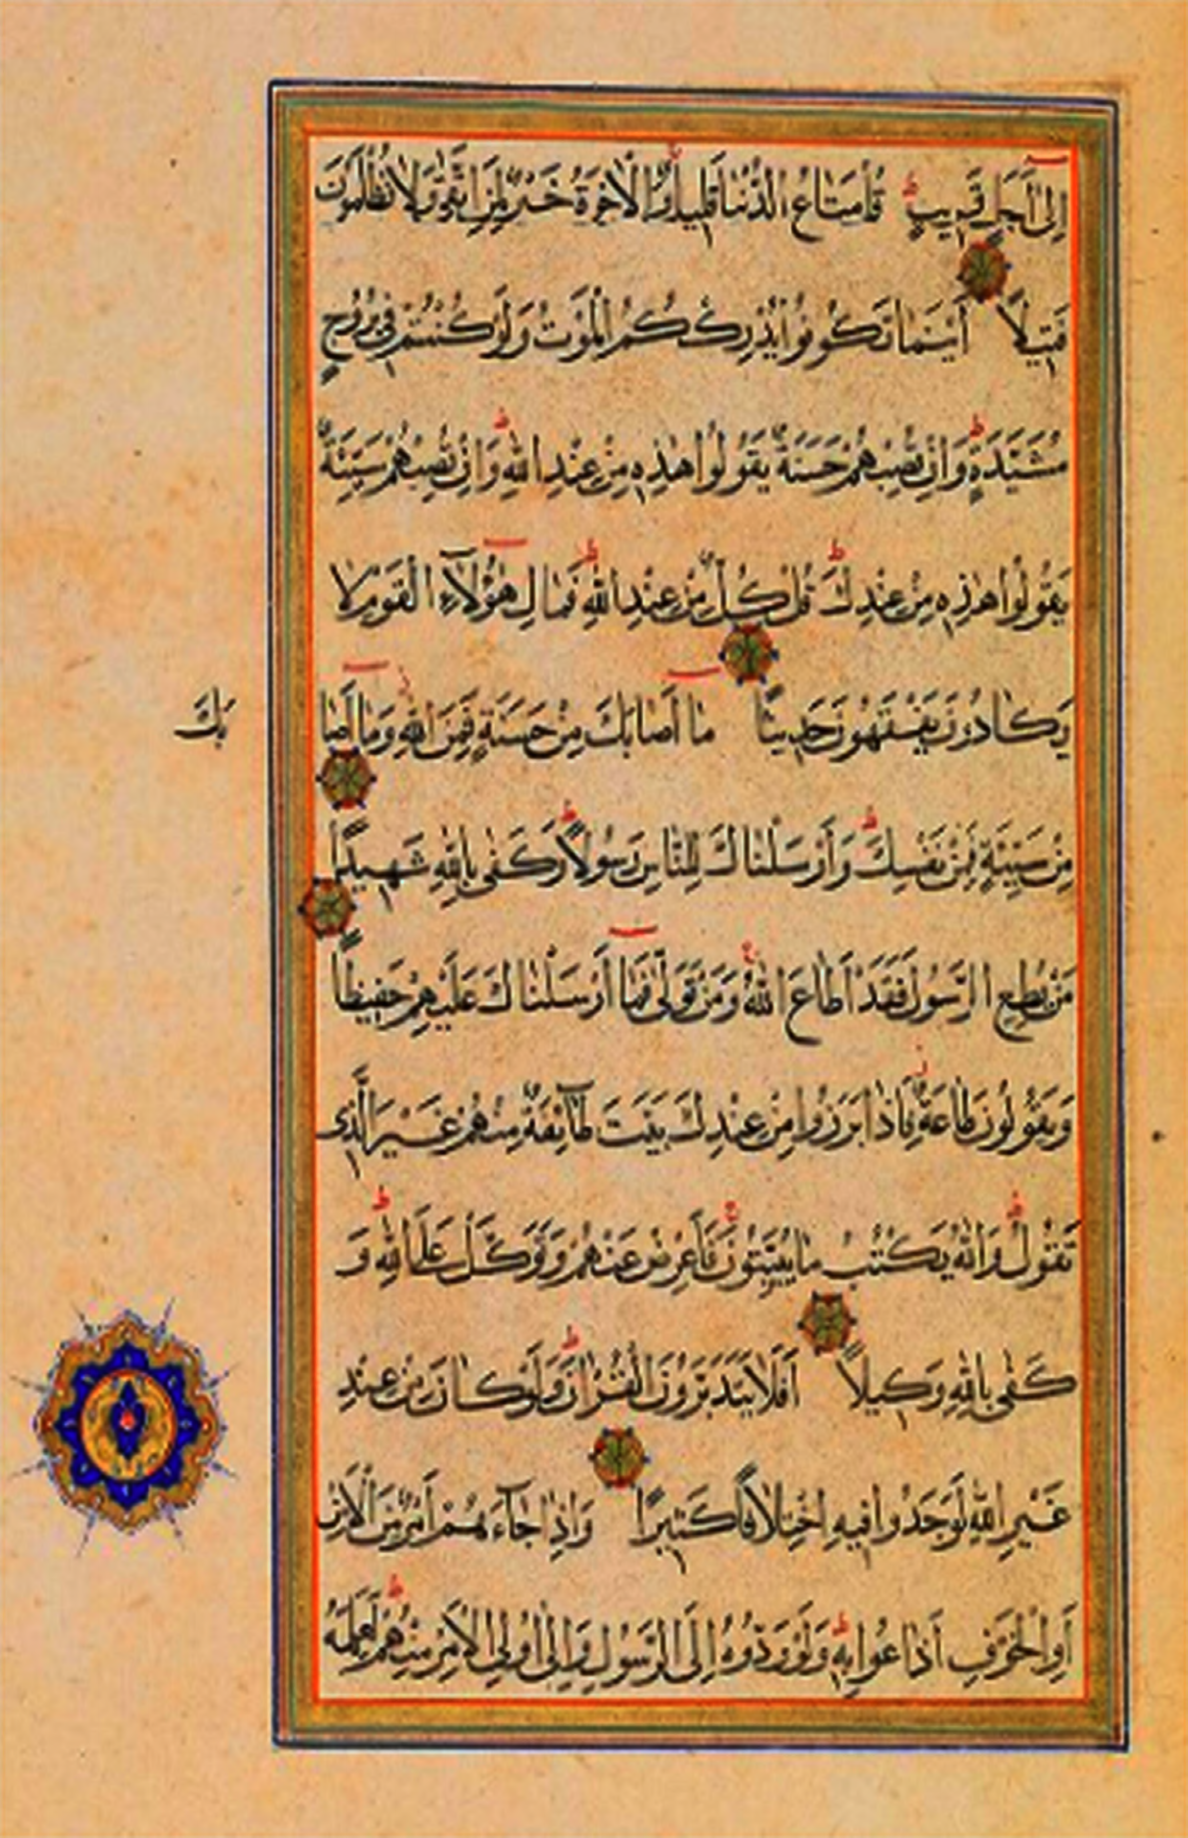 إِلَىٰ أَجَلٍ قَرِيبٍ قُلْ مَتَاعُ الدُّنْيَا قَلِيلٌ وَالْآخِرَةُ خَيْرٌ لِمَنِ اتَّقَىٰ وَلَا تُظْلَمُونَ
فَتِيلًا أَيْنَمَا تَكُونُوا يُدْرِكْكُمُ الْمَوْتُ وَلَوْ كُنْتُمْ فِي بُرُوجٍ
مُشَيَّدَةٍ وَإِنْ تُصِبْهُمْ حَسَنَةٌ يَقُولُوا هَٰذِهِ مِنْ عِنْدِ اللَّهِ وَإِنْ تُصِبْهُمْ سَيِّئَةٌ
يَقُولُوا هَٰذِهِ مِنْ عِنْدِكَ قُلْ كُلٌّ مِنْ عِنْدِ اللَّهِ فَمَالِ هَٰؤُلَاءِ الْقَوْمِ لَا
يَكَادُونَ يَفْقَهُونَ حَدِيثًا مَا أَصَابَكَ مِنْ حَسَنَةٍ فَمِنَ اللَّهِ وَمَا أَصَا
بَكَ
مِنْ سَيِّئَةٍ فَمِنْ نَفْسِكَ وَأَرْسَلْنَاكَ لِلنَّاسِ رَسُولًا وَكَفَىٰ بِاللَّهِ شَهِيدًا
مَنْ يُطِعِ الرَّسُولَ فَقَدْ أَطَاعَ اللَّهَ وَمَنْ تَوَلَّىٰ فَمَا أَرْسَلْنَاكَ عَلَيْهِمْ حَفِيظًا
وَيَقُولُونَ طَاعَةٌ فَإِذَا بَرَزُوا مِنْ عِنْدِكَ بَيَّتَ طَائِفَةٌ مِنْهُمْ غَيْرَ الَّذِي
تَقُولُ وَاللَّهُ يَكْتُبُ مَا يُبَيِّتُونَ فَأَعْرِضْ عَنْهُمْ وَتَوَكَّلْ عَلَى اللَّهِ وَ
كَفَىٰ بِاللَّهِ وَكِيلًا أَفَلَا يَتَدَبَّرُونَ الْقُرْآنَ وَلَوْ كَانَ مِنْ عِنْدِ
غَيْرِ اللَّهِ لَوَجَدُوا فِيهِ اخْتِلَافًا كَثِيرًا وَإِذَا جَاءَهُمْ أَمْرٌ مِنَ الْأَمْنِ
أَوِ الْخَوْفِ أَذَاعُوا بِهِ وَلَوْ رَدُّوهُ إِلَى الرَّسُولِ وَإِلَىٰ أُولِي الْأَمْرِ مِنْهُمْ لَعَلِمَهُ